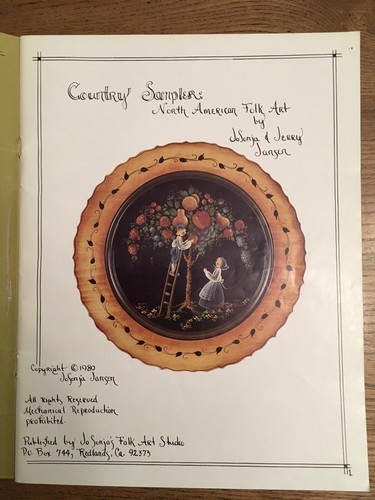 Country Sampler:
North American Folk Art
by
JoSonja & Jerry
Jansen
Copyright ©1980
JoSonja Jansen
All rights Reserved
Mechanical Reproduction
prohibited.
Published by JoSonja's Folk Art Studio
P.O Box 744, Redlands, Ca 92373
1